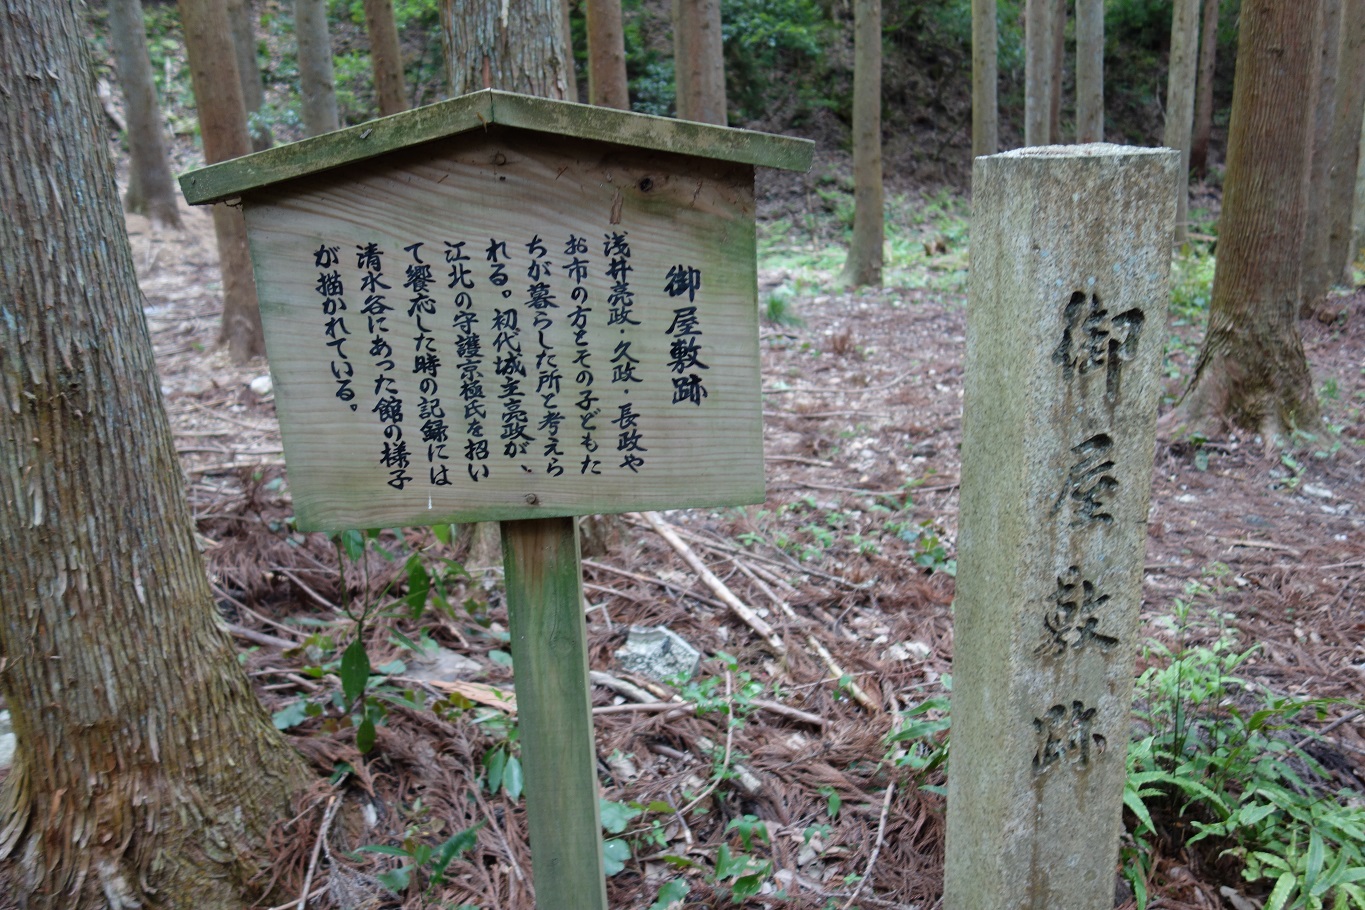 御屋敷跡
浅井亮政・久政・長政や
お市の方とその子どもた
ちが暮らした所と考えら
れる。初代城主亮政が、
江北の守護京極氏を招い
て饗応した時の記録には
清水谷にあった館の様子
が描かれている。
御屋敷跡